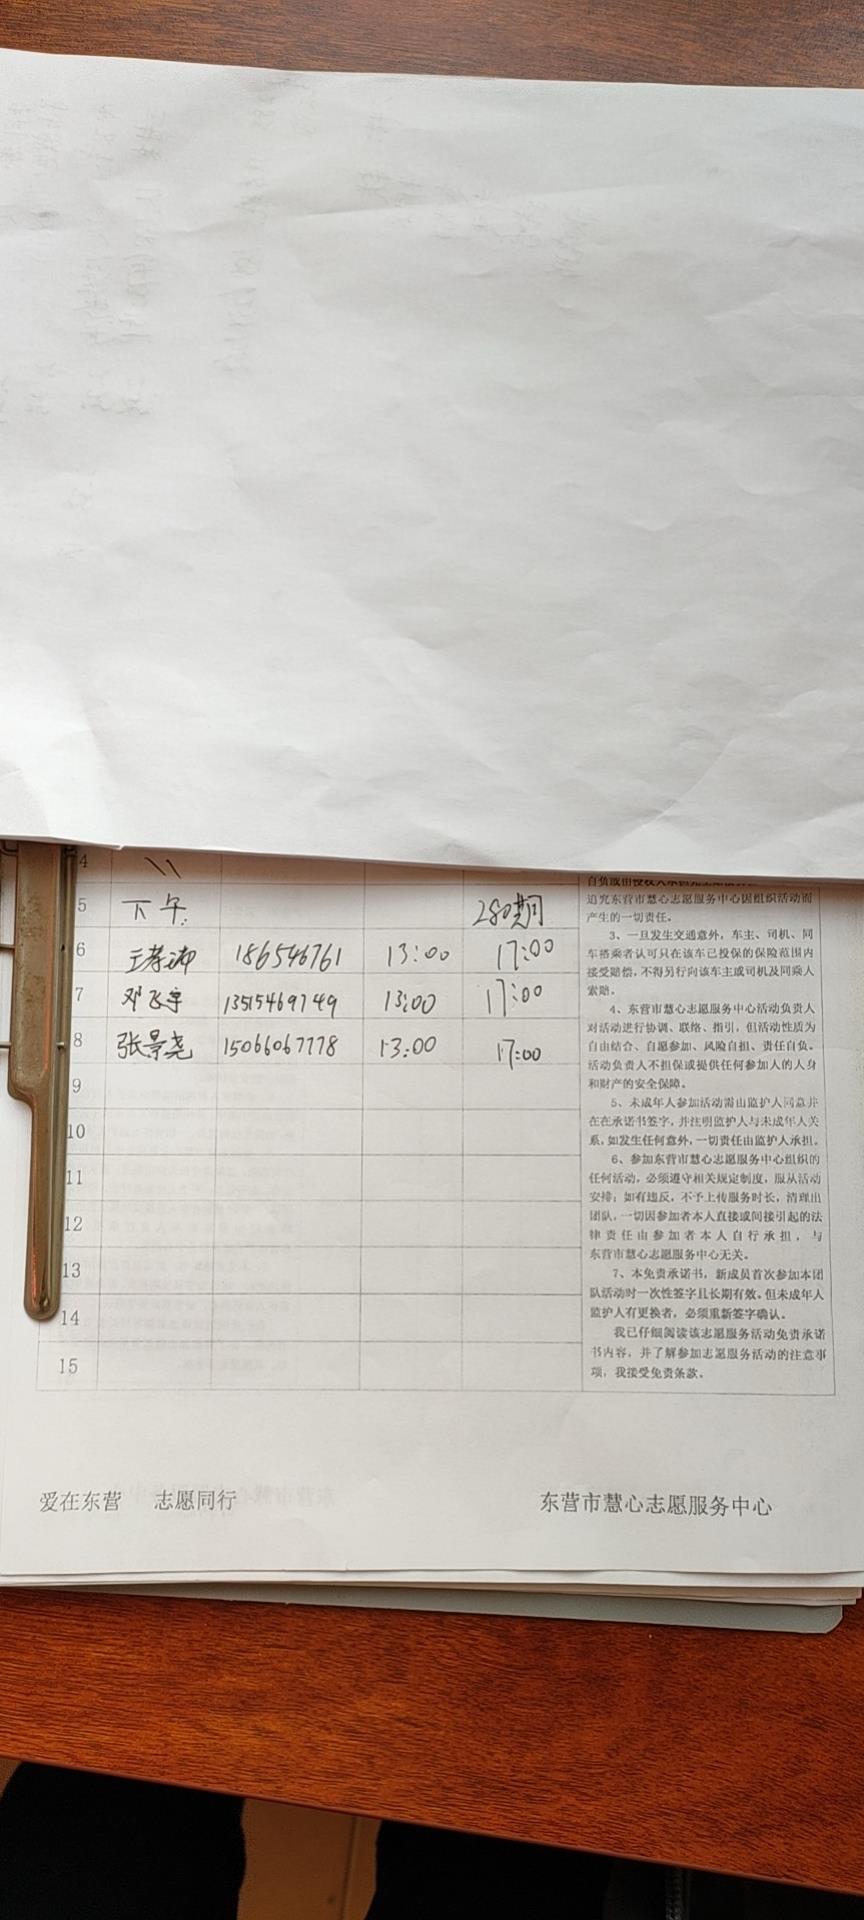 4
5 下午 280期
6 186546761 13:00 17:00
7 邓飞宇 13515469749 13:00 17:00
8 张景尧 15066067778 13:00 17:00
9
10
11
12
13
14
15
追究东营市慧心志愿服务中心因组织活动而
产生的一切责任。
3、一旦发生交通意外，车主、司机、同
车搭乘者认可只在该车已投保的保险范围内
接受赔偿，不得另行向该车主或司机及同乘人
索赔。
4、东营市慧心志愿服务中心活动负责人
对活动进行协调、联络、指引，但活动性质为
自由结合、自愿参加、风险自担、责任自负。
活动负责人不担保或提供任何参加人的人身
和财产的安全保障。
5、未成年人参加活动需由监护人同意并
在在承诺书签字，并注明监护人与未成年人关
系，如发生任何意外，一切责任由监护人承担。
6、参加东营市慧心志愿服务中心组织的
任何活动，必须遵守相关规定制度，服从活动
安排；如有违反，不予上传服务时长，清理出
团队，一切因参加者本人直接或间接引起的法
律责任由参加者本人自行承担，与
东营市慧心志愿服务中心无关。
7、本免责承诺书，新成员首次参加本团
队活动时一次性签字且长期有效。但未成年人
监护人有更换者，必须重新签字确认。
我已仔细阅读该志愿服务活动免责承诺
书内容，并了解参加志愿服务活动的注意事
项，我接受免责条款。
爱在东营 志愿同行
东营市慧心志愿服务中心